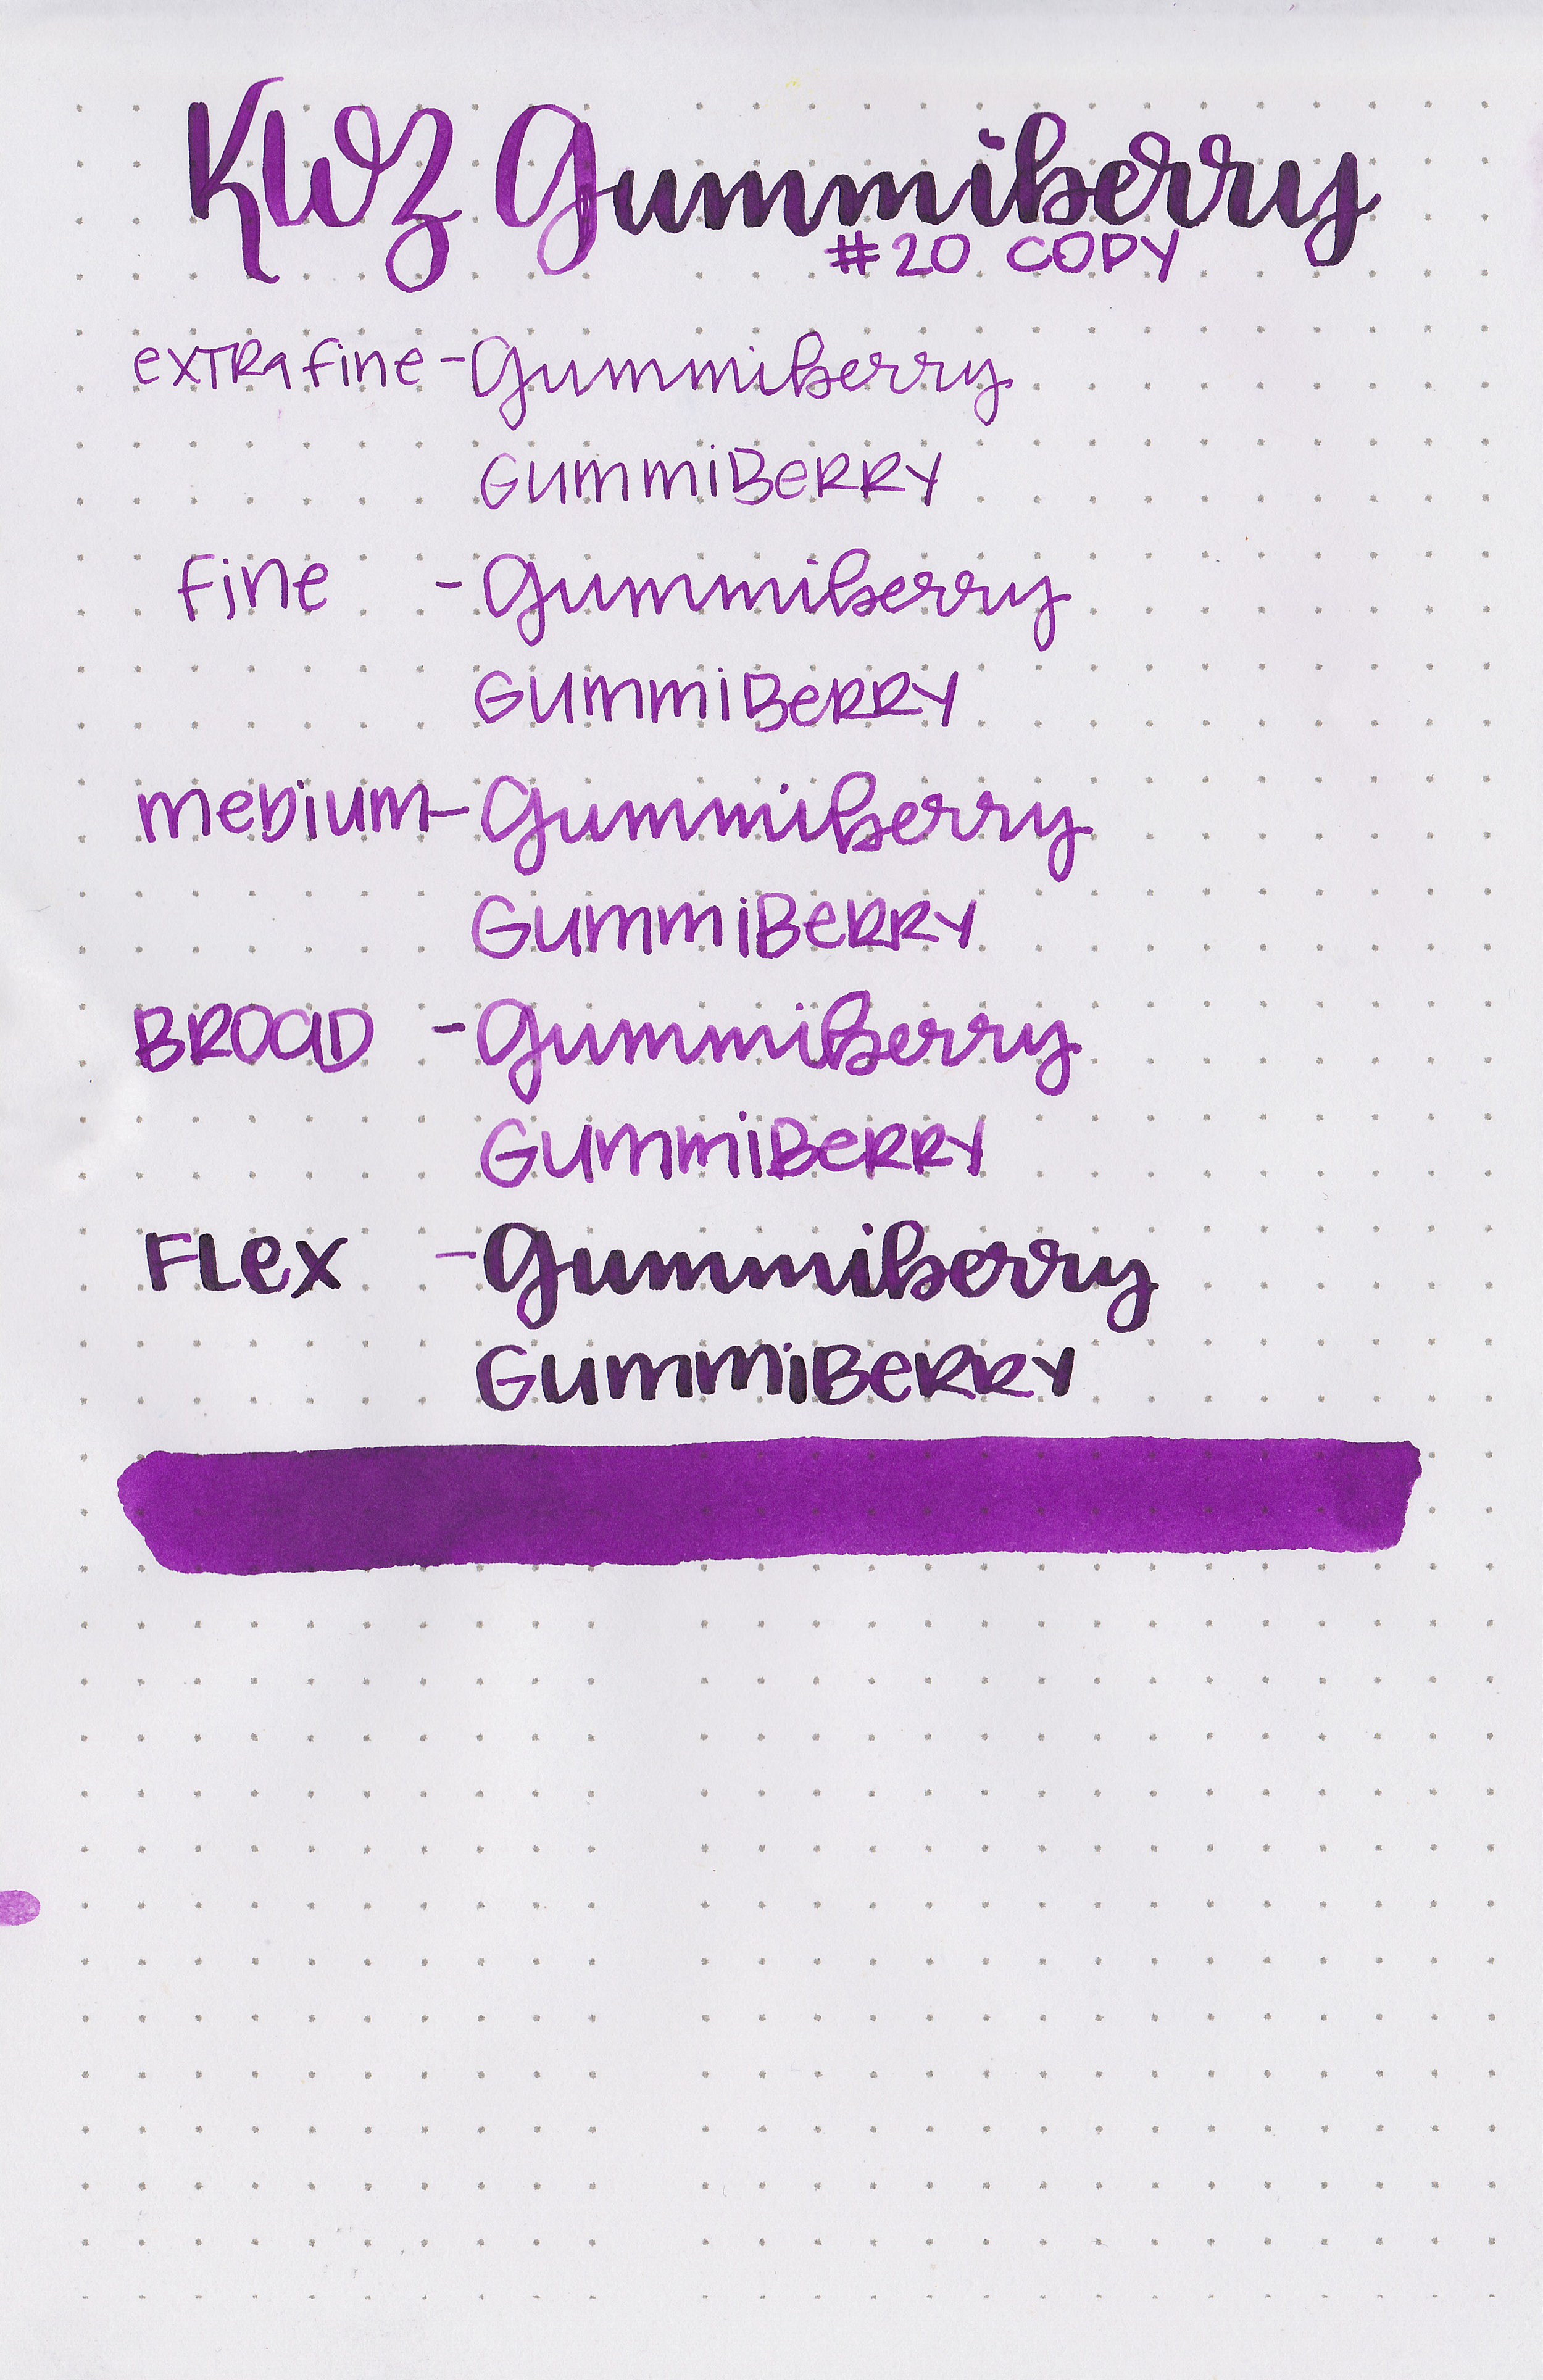 KWZ Gummiberry
#20 COPY
exTRa fine - Gummiberry
GummiBeRRY
fine - Gummiberry
GummiBeRRY
meDium - Gummiberry
GummiBeRRY
BROaD - GummiBerry
GummiBeRRY
FLex - Gummiberry
GummiBeRRY